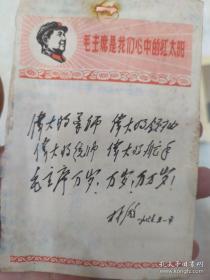 毛主席是我们心中的红太阳
伟大的导师 伟大的领袖
伟大的统帅 伟大的舵手
毛主席万岁！万岁！万万岁！
林彪
孔夫子旧书网